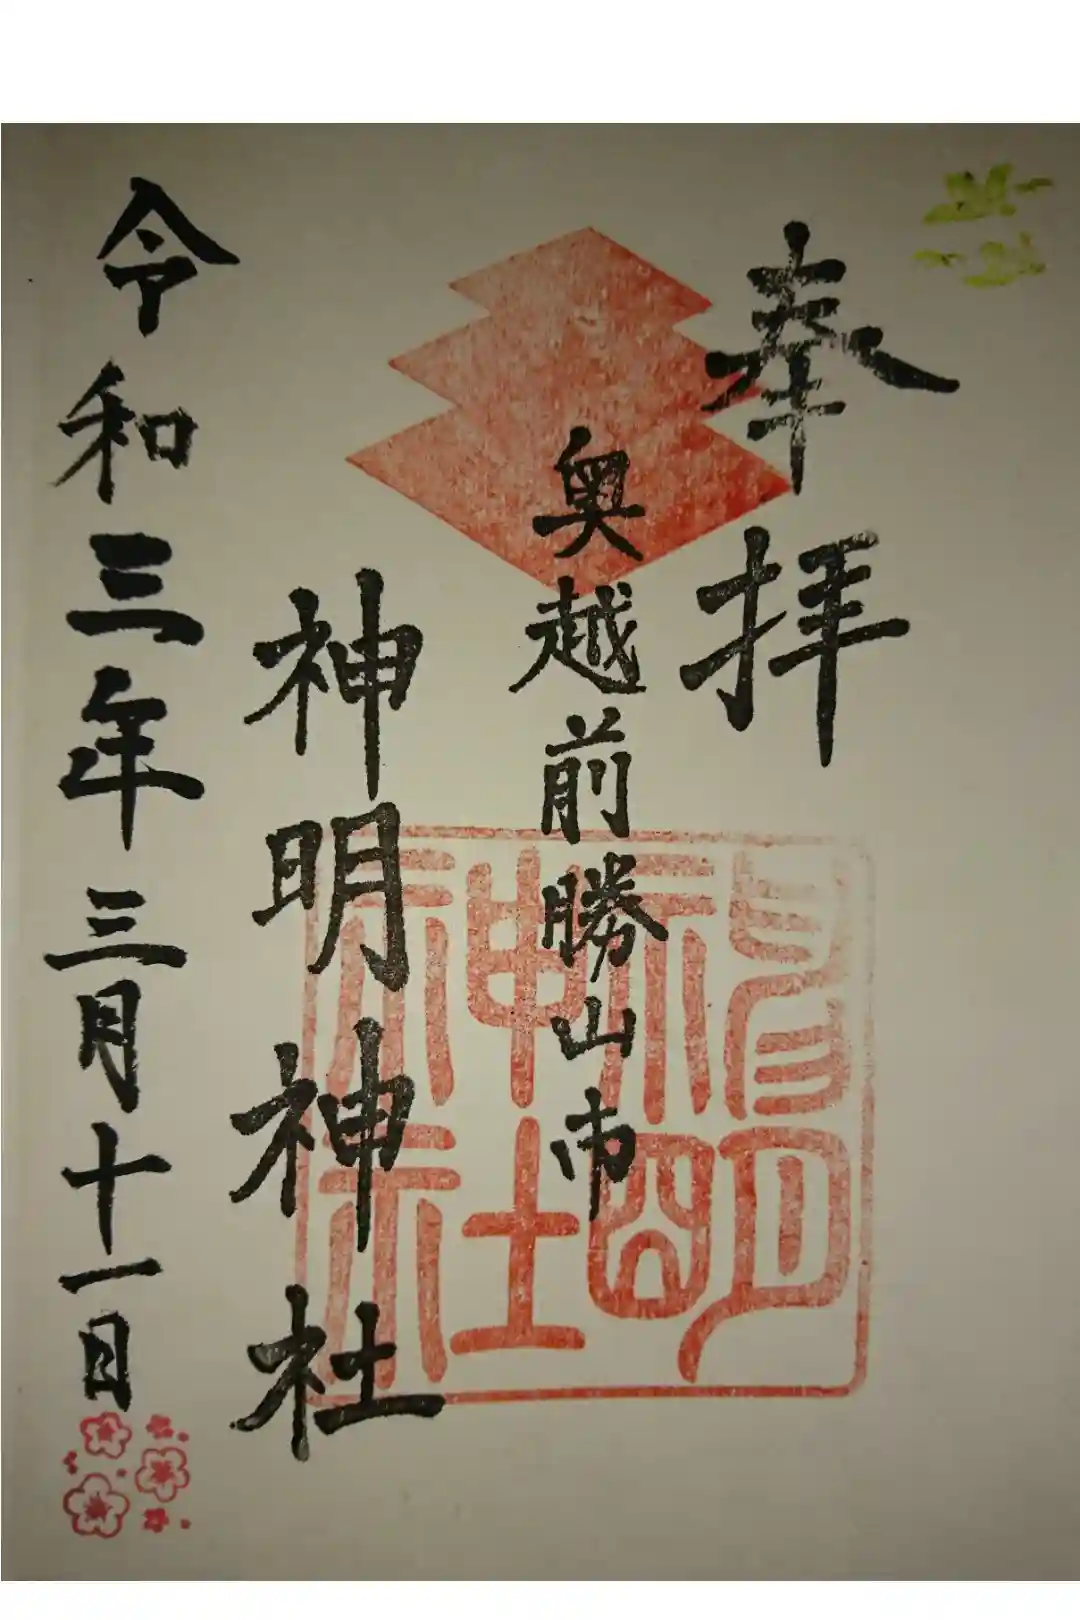 奉拝
奥越前勝山市
神明神社
神明神社
令和三年三月十一日